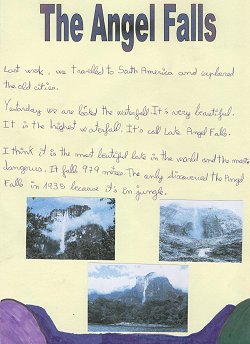 The Angel Falls
Last week, we travelled to South America and explored
the old cities.
Yesterday we are looked the waterfall. It's very beautiful.
It is the highest waterfall. It's call Late Angel Falls.
I think it is the most beatiful late in the world and the most
dangerous. It falls 979 metres. The only discovered the Angel
Falls in 1935 because it's in jungle.